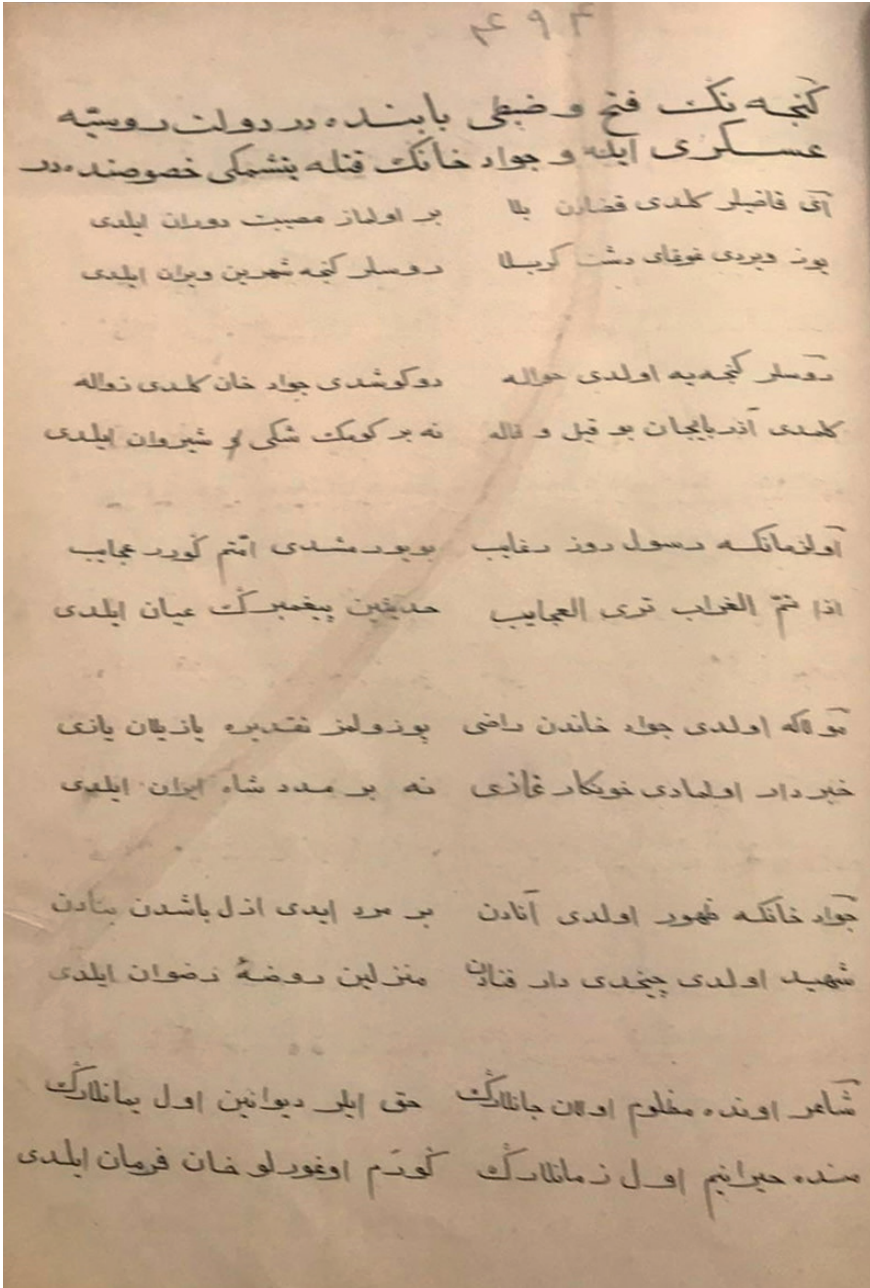 ۴۹۴
كنجه نڭ فتح و ضبطی بابنده در دولت روسیّه
عسكری ایله و جواد خانڭ قتله یتشمكی خصوصنده در
آی قاضیلر كلدی قضادن بلا بر اولماز مصیبت دوران ایلدی
یوز ویردی غوغای دشت كربلا روسلر كنجه شهرین ویران ایلدی
روسلر كنجه یه اولدی حواله دوكوشدی جواد خان كلدی زواله
كلمدی آذربایجان بو قیل و قاله نه بر كومك شكی و شیروان ایلدی
اولزمانكه رسول روز رغایب بویورمشدی امّتم كورر عجایب
اذا تمّ الغراب تری العجایب حدیثین پیغمبرڭ عیان ایلدی
مولاكه اولدی جواد خاندن راضی پوزولمز تقدیره یازیلان یازی
خبردار اولمادی خونكار غازی نه بر مدد شاه ایران ایلدی
جواد خانكه ظهور اولدی آنادن بر مرد ایدی ازل باشدن بنادن
شهید اولدی چیخدی دار فنادن منزلین روضهٔ رضوان ایلدی
شاعر اونده مظلوم اولان جانلارڭ حق ایلر دیوانین اول یمانلارڭ
منده حیرانیم اول زمانلارڭ كورّم اوغورلو خان فرمان ایلدی